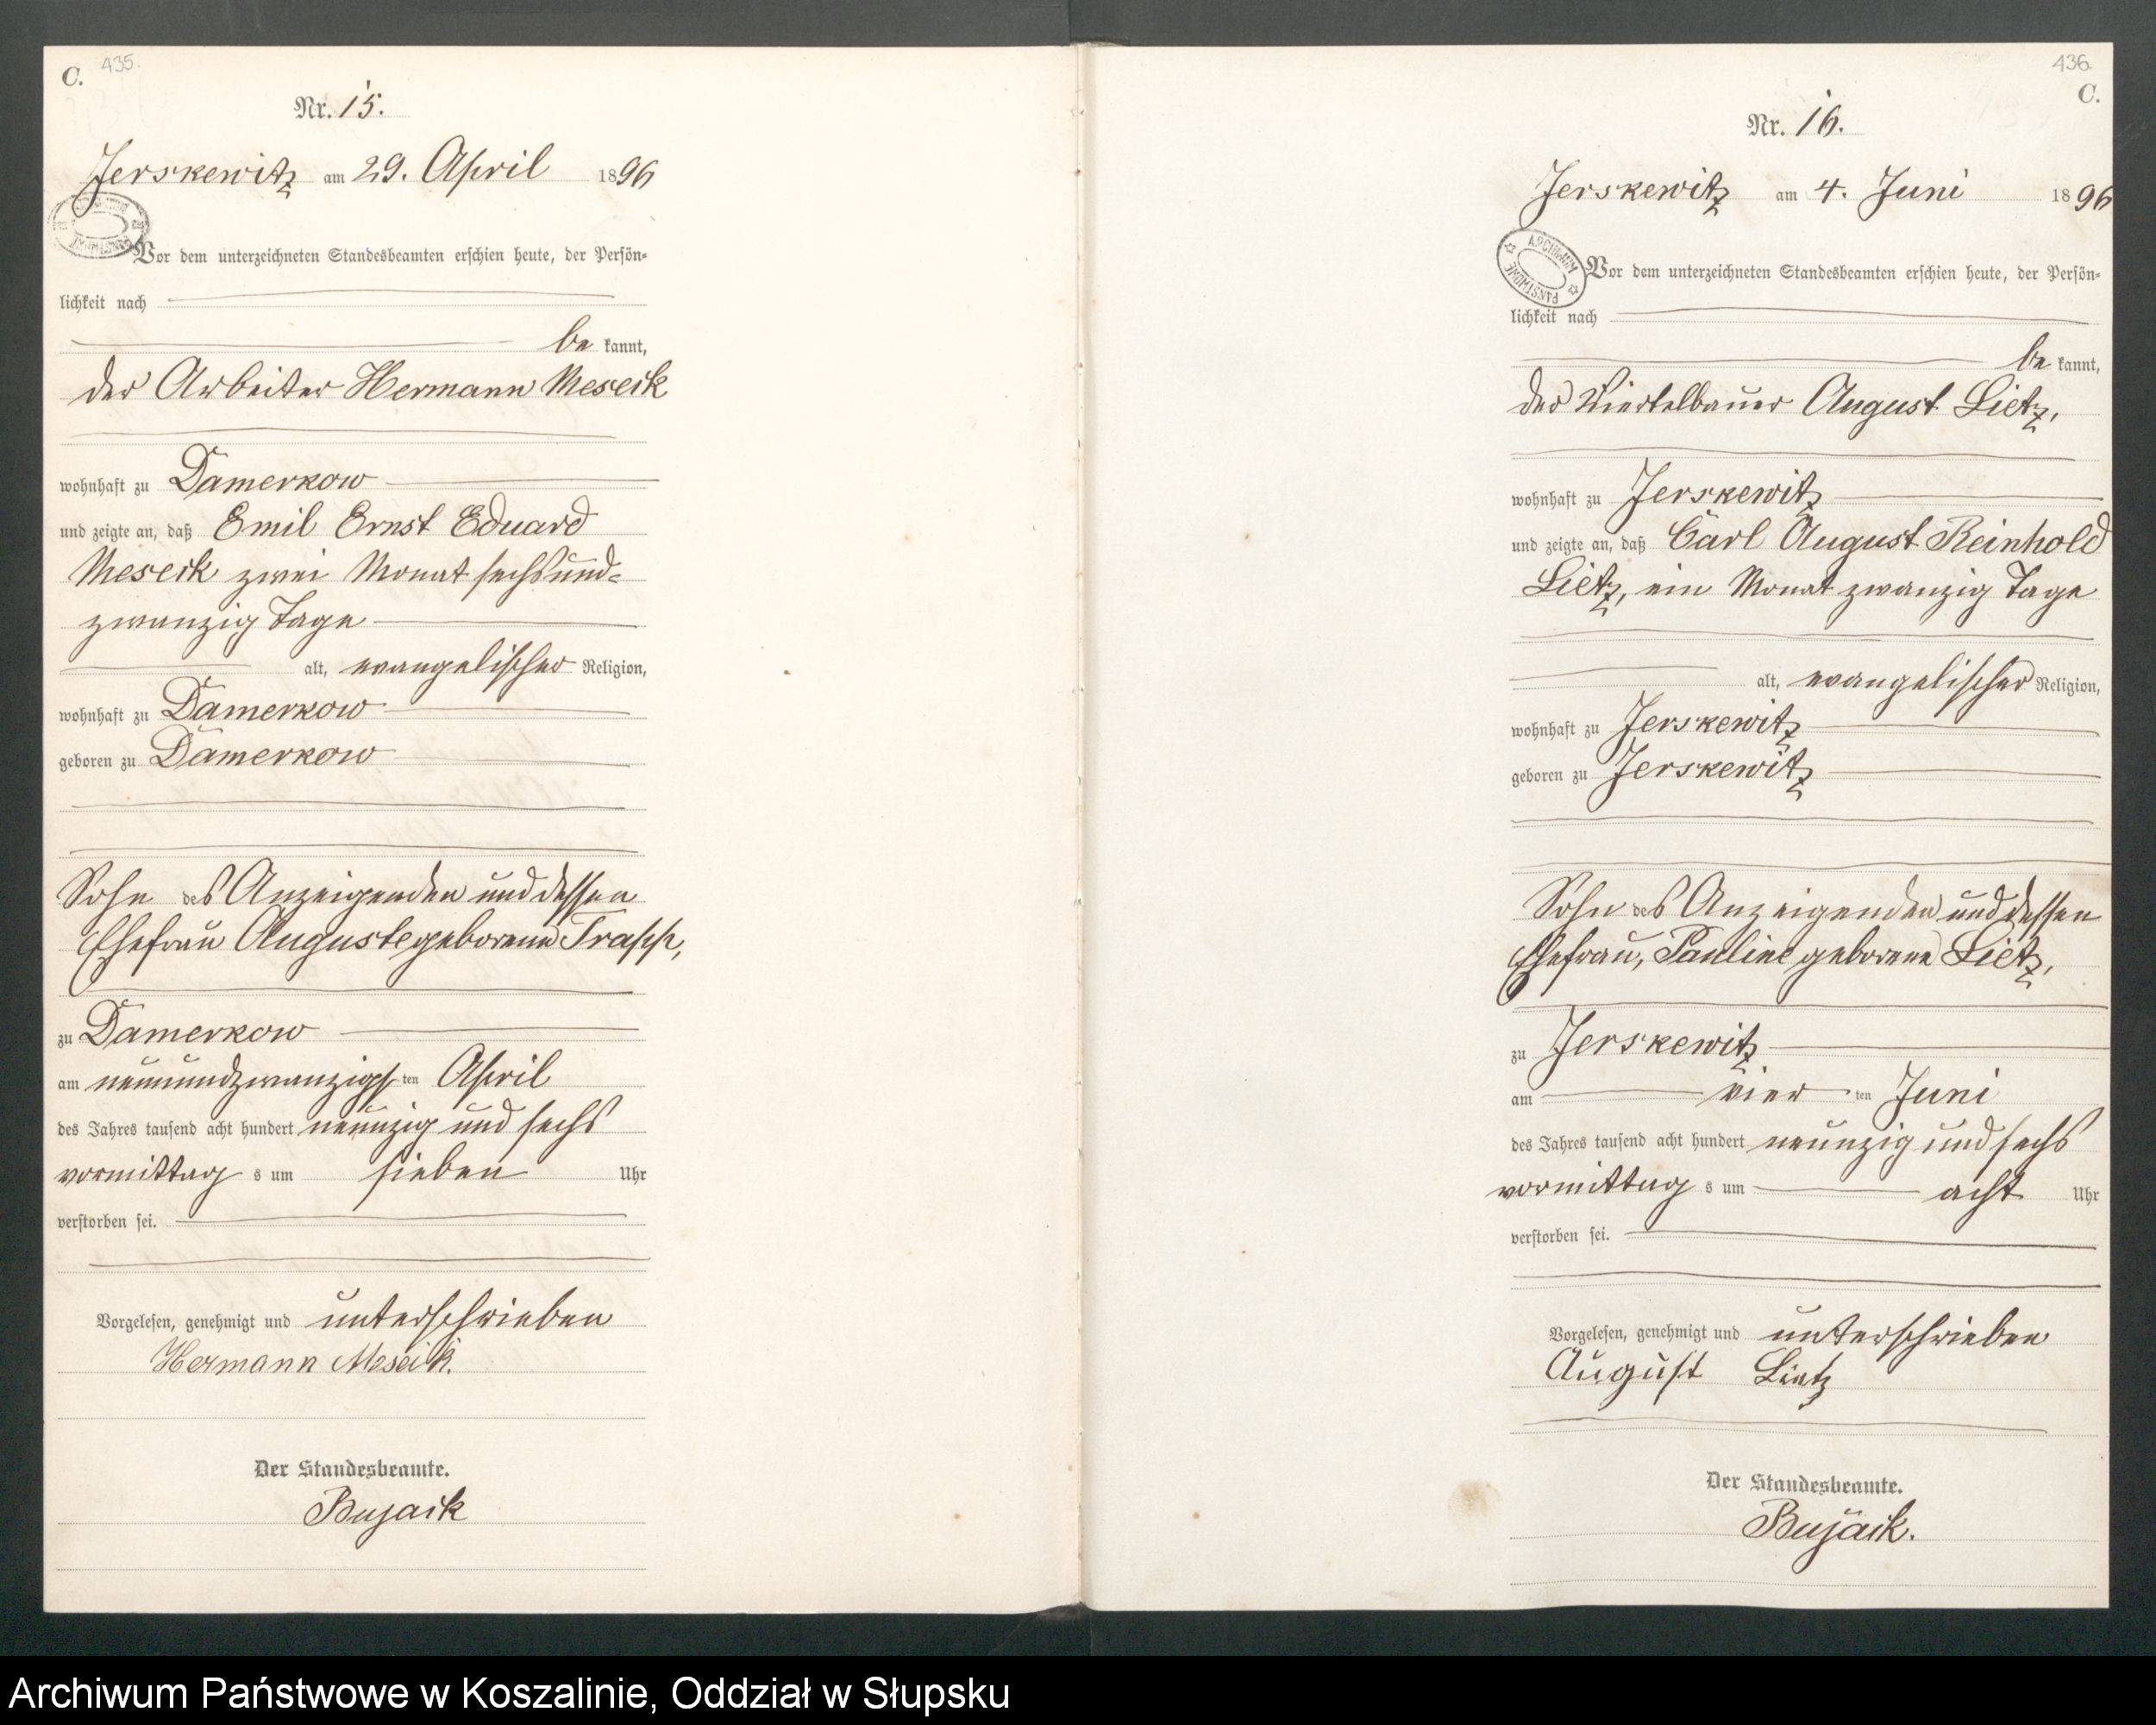 C. 435.
Nr. 15.
Jerskewitz am 29. April 1896
Vor dem unterzeichneten Standesbeamten erschien heute, der Persön-
lichkeit nach
be kannt,
der Arbeiter Hermann Meseck
wohnhaft zu Damerkow
und zeigte an, daß Emil Ernst Eduard
Meseck zwei Monat sechsund-
zwanzig Tage
alt, evangelischer Religion,
wohnhaft zu Damerkow
geboren zu Damerkow
Sohn des Anzeigenden und dessen
Ehefrau Auguste geborene Trapp,
zu Damerkow
am neunundzwanzigsten April
des Jahres tausend acht hundert neunzig und sechs
vormittags um sieben Uhr
verstorben sei.
Vorgelesen, genehmigt und unterschrieben
Hermann Meseck.
Der Standesbeamte.
Bujack
436.
C.
Nr. 16.
Jerskewitz am 4. Juni 1896
ARCHIWUM PAŃSTWOWE
Vor dem unterzeichneten Standesbeamten erschien heute, der Persön-
lichkeit nach
be kannt,
der Viertelbauer August Lietz,
wohnhaft zu Jerskewitz
und zeigte an, daß Carl August Reinhold
Lietz, ein Monat zwanzig Tage
alt, evangelischer Religion,
wohnhaft zu Jerskewitz
geboren zu Jerskewitz
Sohn des Anzeigenden und dessen
Ehefrau, Pauline geborene Lietz,
zu Jerskewitz
am vierten Juni
des Jahres tausend acht hundert neunzig und sechs
vormittags um acht Uhr
verstorben sei.
Vorgelesen, genehmigt und unterschrieben
August Lietz
Der Standesbeamte.
Bujack.
Archiwum Państwowe w Koszalinie, Oddział w Słupsku